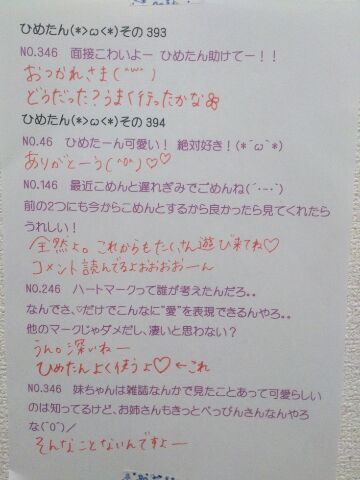 ひめたん(*>ω<*)その393
NO.346　面接こわいよー　ひめたん助けてー！！
おつかれさま(^ω^)
どうだった？うまく行ったかな
ひめたん(*>ω<*)その394
NO.46　ひめたーん可愛い！ 絶対好き！(*´ω`*)
ありがとーう(^o^)♡♡
NO.146　最近こめんと遅れぎみでごめんね(´･-･`)
前の2つにも今からこめんとするから良かったら見てくれたら
うれしい！
全然よ。これからもたくさん遊び来てね♡
コメント読んでるよおおおおーん
NO.246　ハートマークって誰が考えたんだろ。。
なんでさ、♡だけでこんなに"愛"を表現できるんやろ。。
他のマークじゃダメだし、凄いと思わない？
うん。深いねー
ひめたんよく使うよ♡ ←これ
NO.346　妹ちゃんは雑誌なんかで見たことあって可愛らしい
のは知ってるけど、お姉さんもきっとべっぴんさんなんやろ
な(^O^)／
そんなことないんですよー